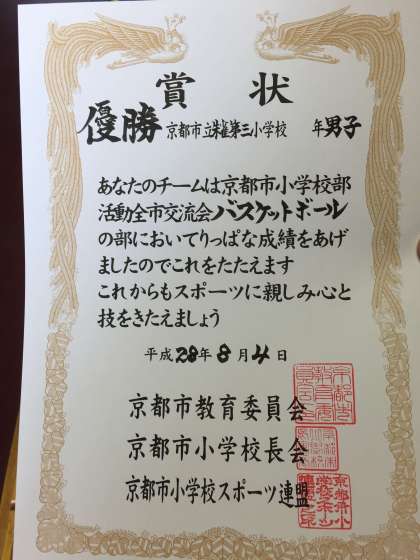 賞状
優勝 京都市立朱雀第三小学校 年男子
あなたのチームは京都市小学校部
活動全市交流会バスケットボール
の部においてりっぱな成績をあげ
ましたのでこれをたたえます
これからもスポーツに親しみ心と
技をきたえましょう
平成28年8月4日
京都市教育委員会
京都市小学校長会
京都市小学校スポーツ連盟